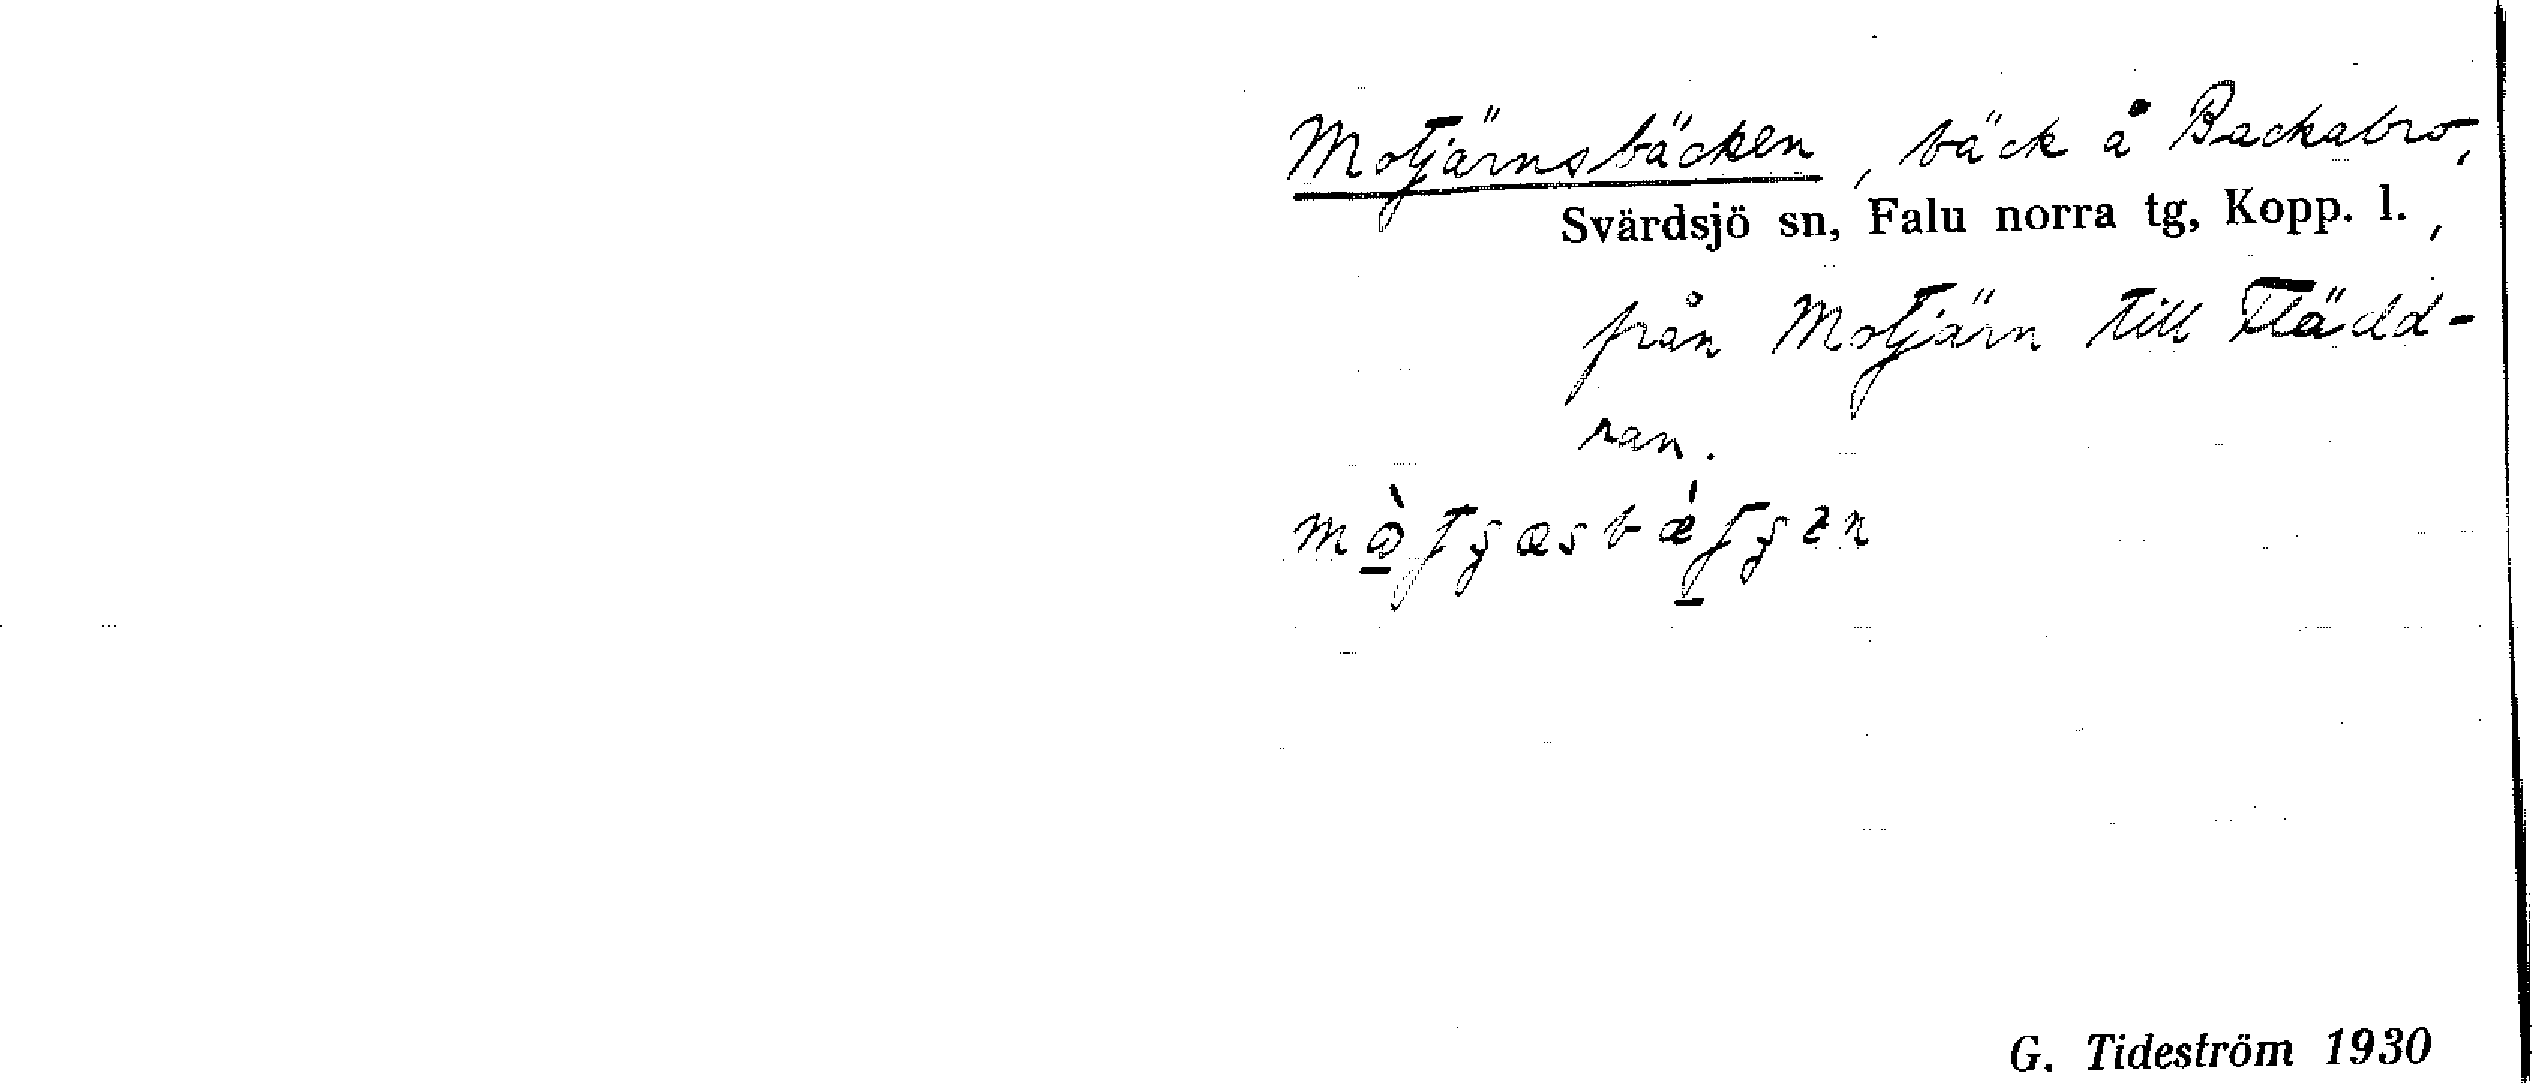 Motjärnsbäcken, bäck å Backabro,
Svärdsjö sn, Falu norra tg, Kopp. l.,
från Motjärn till Flädd-
ran.
G. Tideström 1930